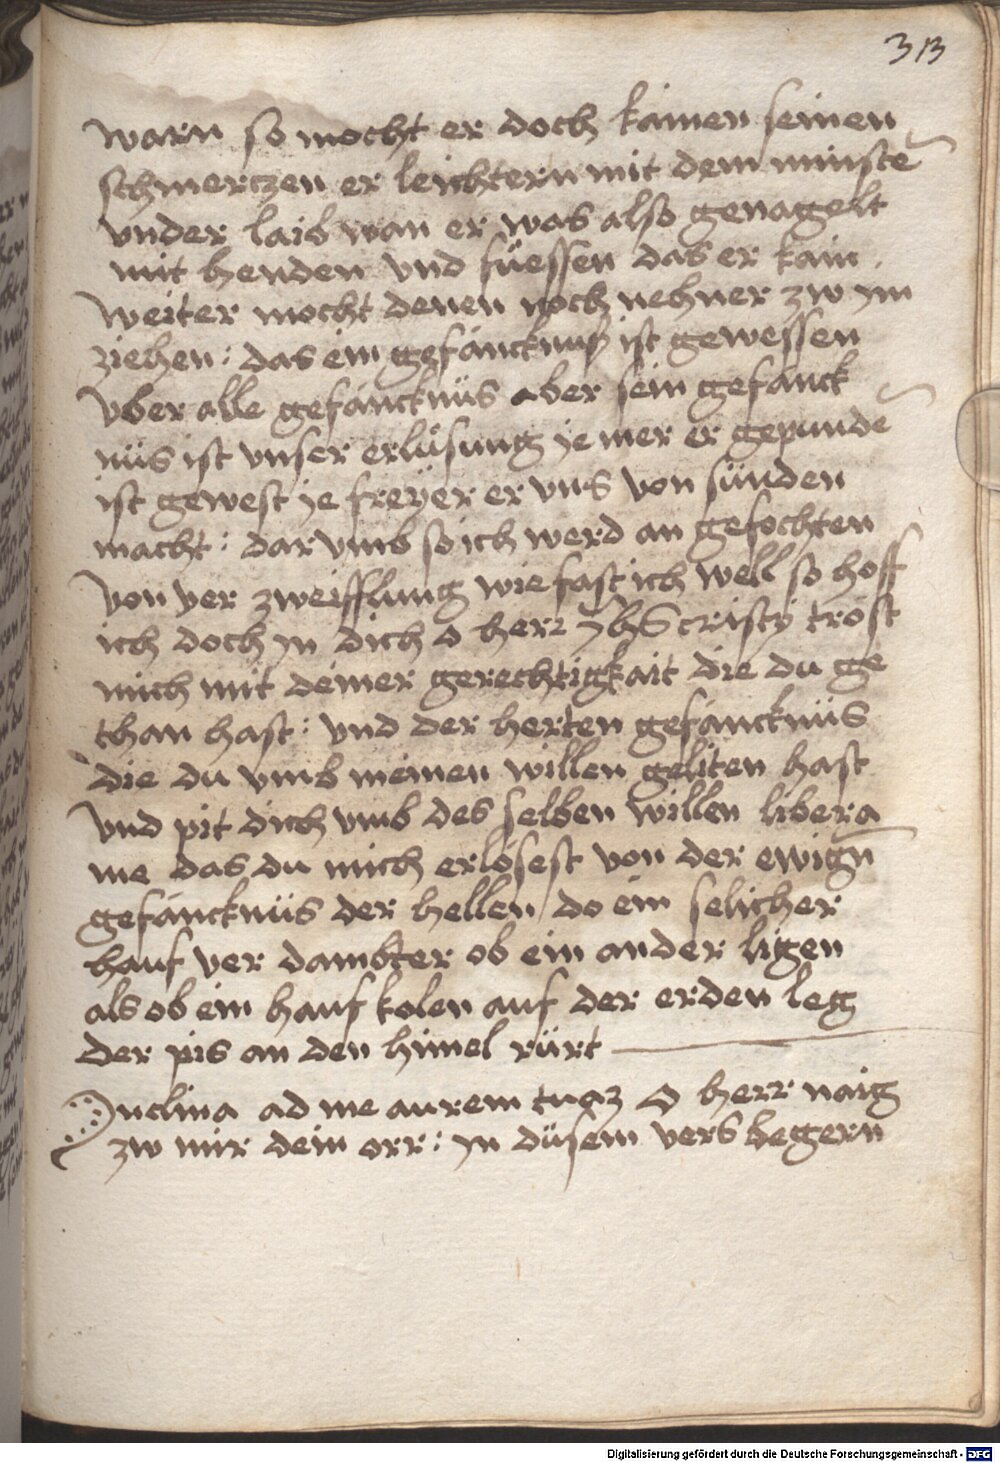 313
warn so mocht er doch kainen seinen
schmerczen er leichtern mit dem minste
vnder laib wan er was also genagelt
mit henden vnd füessen das er kain
weiter mocht denen noch nehner zw ym
ziehen : das ein gefäncknuß ist gewessen
vber alle gefäncknüs aber sein gefänck
nüs ist vnser erlüsung je mer er gepunde
ist gewest je freyer er vns von sünden
macht : dar vmb so ich werd an gefochten
von ver zweifflung wie fast ich well so hoff
ich doch yn dich o herr yhs cristy tröst
mich mit deiner gerechtigkait die du ge
than hast : vnd der herten gefäncknüs
die du vmb meinen willen geliten hast
vnd pit dich vmb des selben willen libera
me das du mich erlösest von der ewign
gefäncknüs der hellen / do ein selicher
hauf ver dambter ob ein ander ligen
als ob ein hauf kolen auf der erden leg
der pis an den himel rürt
Inclina ad me aurem tuaz O herr naig
zw mir dein orr : yn düsem vers begern
Digitalisierung gefördert durch die Deutsche Forschungsgemeinschaft - DFG